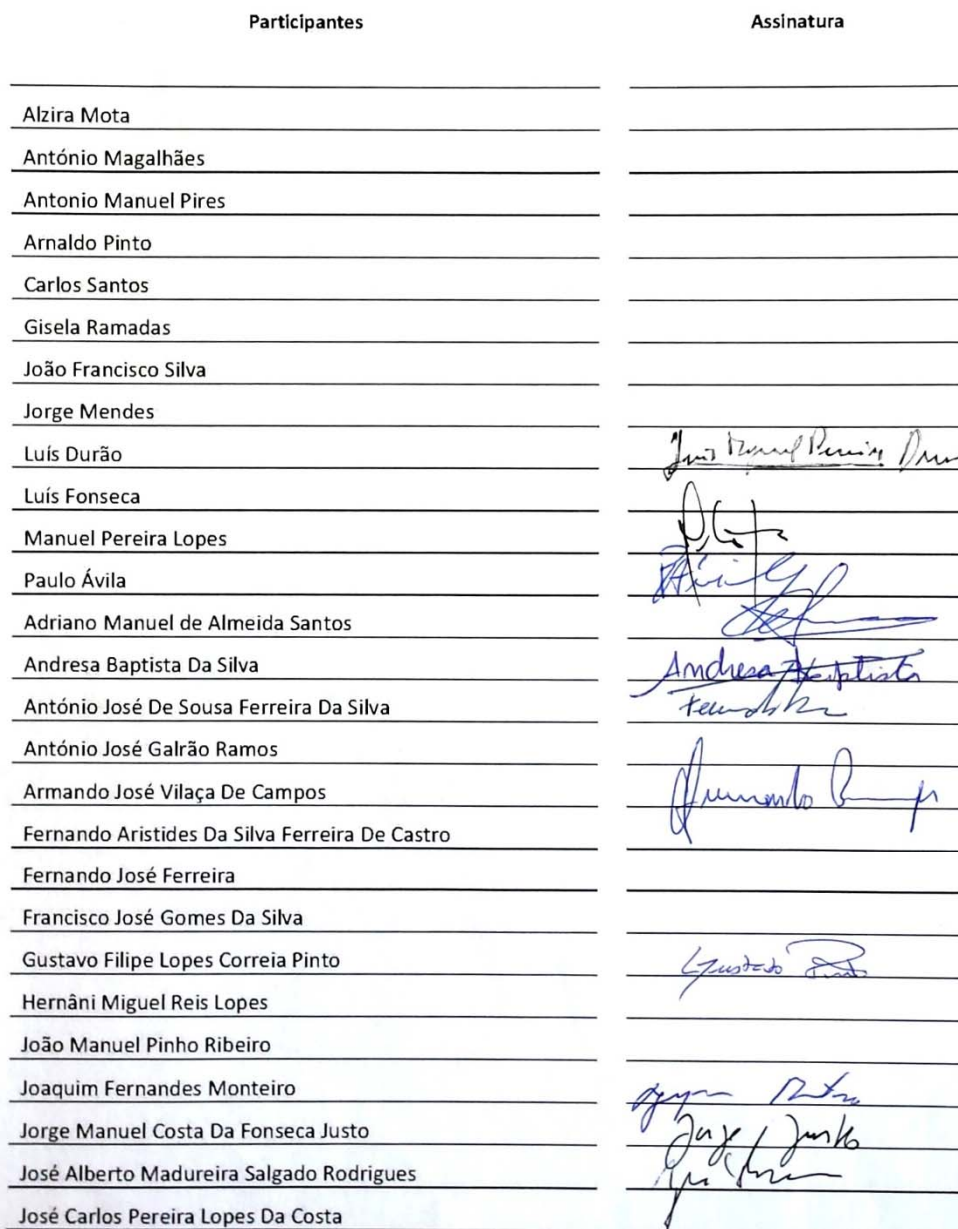 Participantes Assinatura
Alzira Mota
António Magalhães
Antonio Manuel Pires
Arnaldo Pinto
Carlos Santos
Gisela Ramadas
João Francisco Silva
Jorge Mendes
Luís Durão
Luís Fonseca
Manuel Pereira Lopes
Paulo Ávila
Adriano Manuel de Almeida Santos
Andresa Baptista Da Silva Andresa Baptista
António José De Sousa Ferreira Da Silva
António José Galrão Ramos
Armando José Vilaça De Campos Armando
Fernando Aristides Da Silva Ferreira De Castro
Fernando José Ferreira
Francisco José Gomes Da Silva
Gustavo Filipe Lopes Correia Pinto Gustavo Pinto
Hernâni Miguel Reis Lopes
João Manuel Pinho Ribeiro
Joaquim Fernandes Monteiro
Jorge Manuel Costa Da Fonseca Justo Jorge Justo
José Alberto Madureira Salgado Rodrigues
José Carlos Pereira Lopes Da Costa